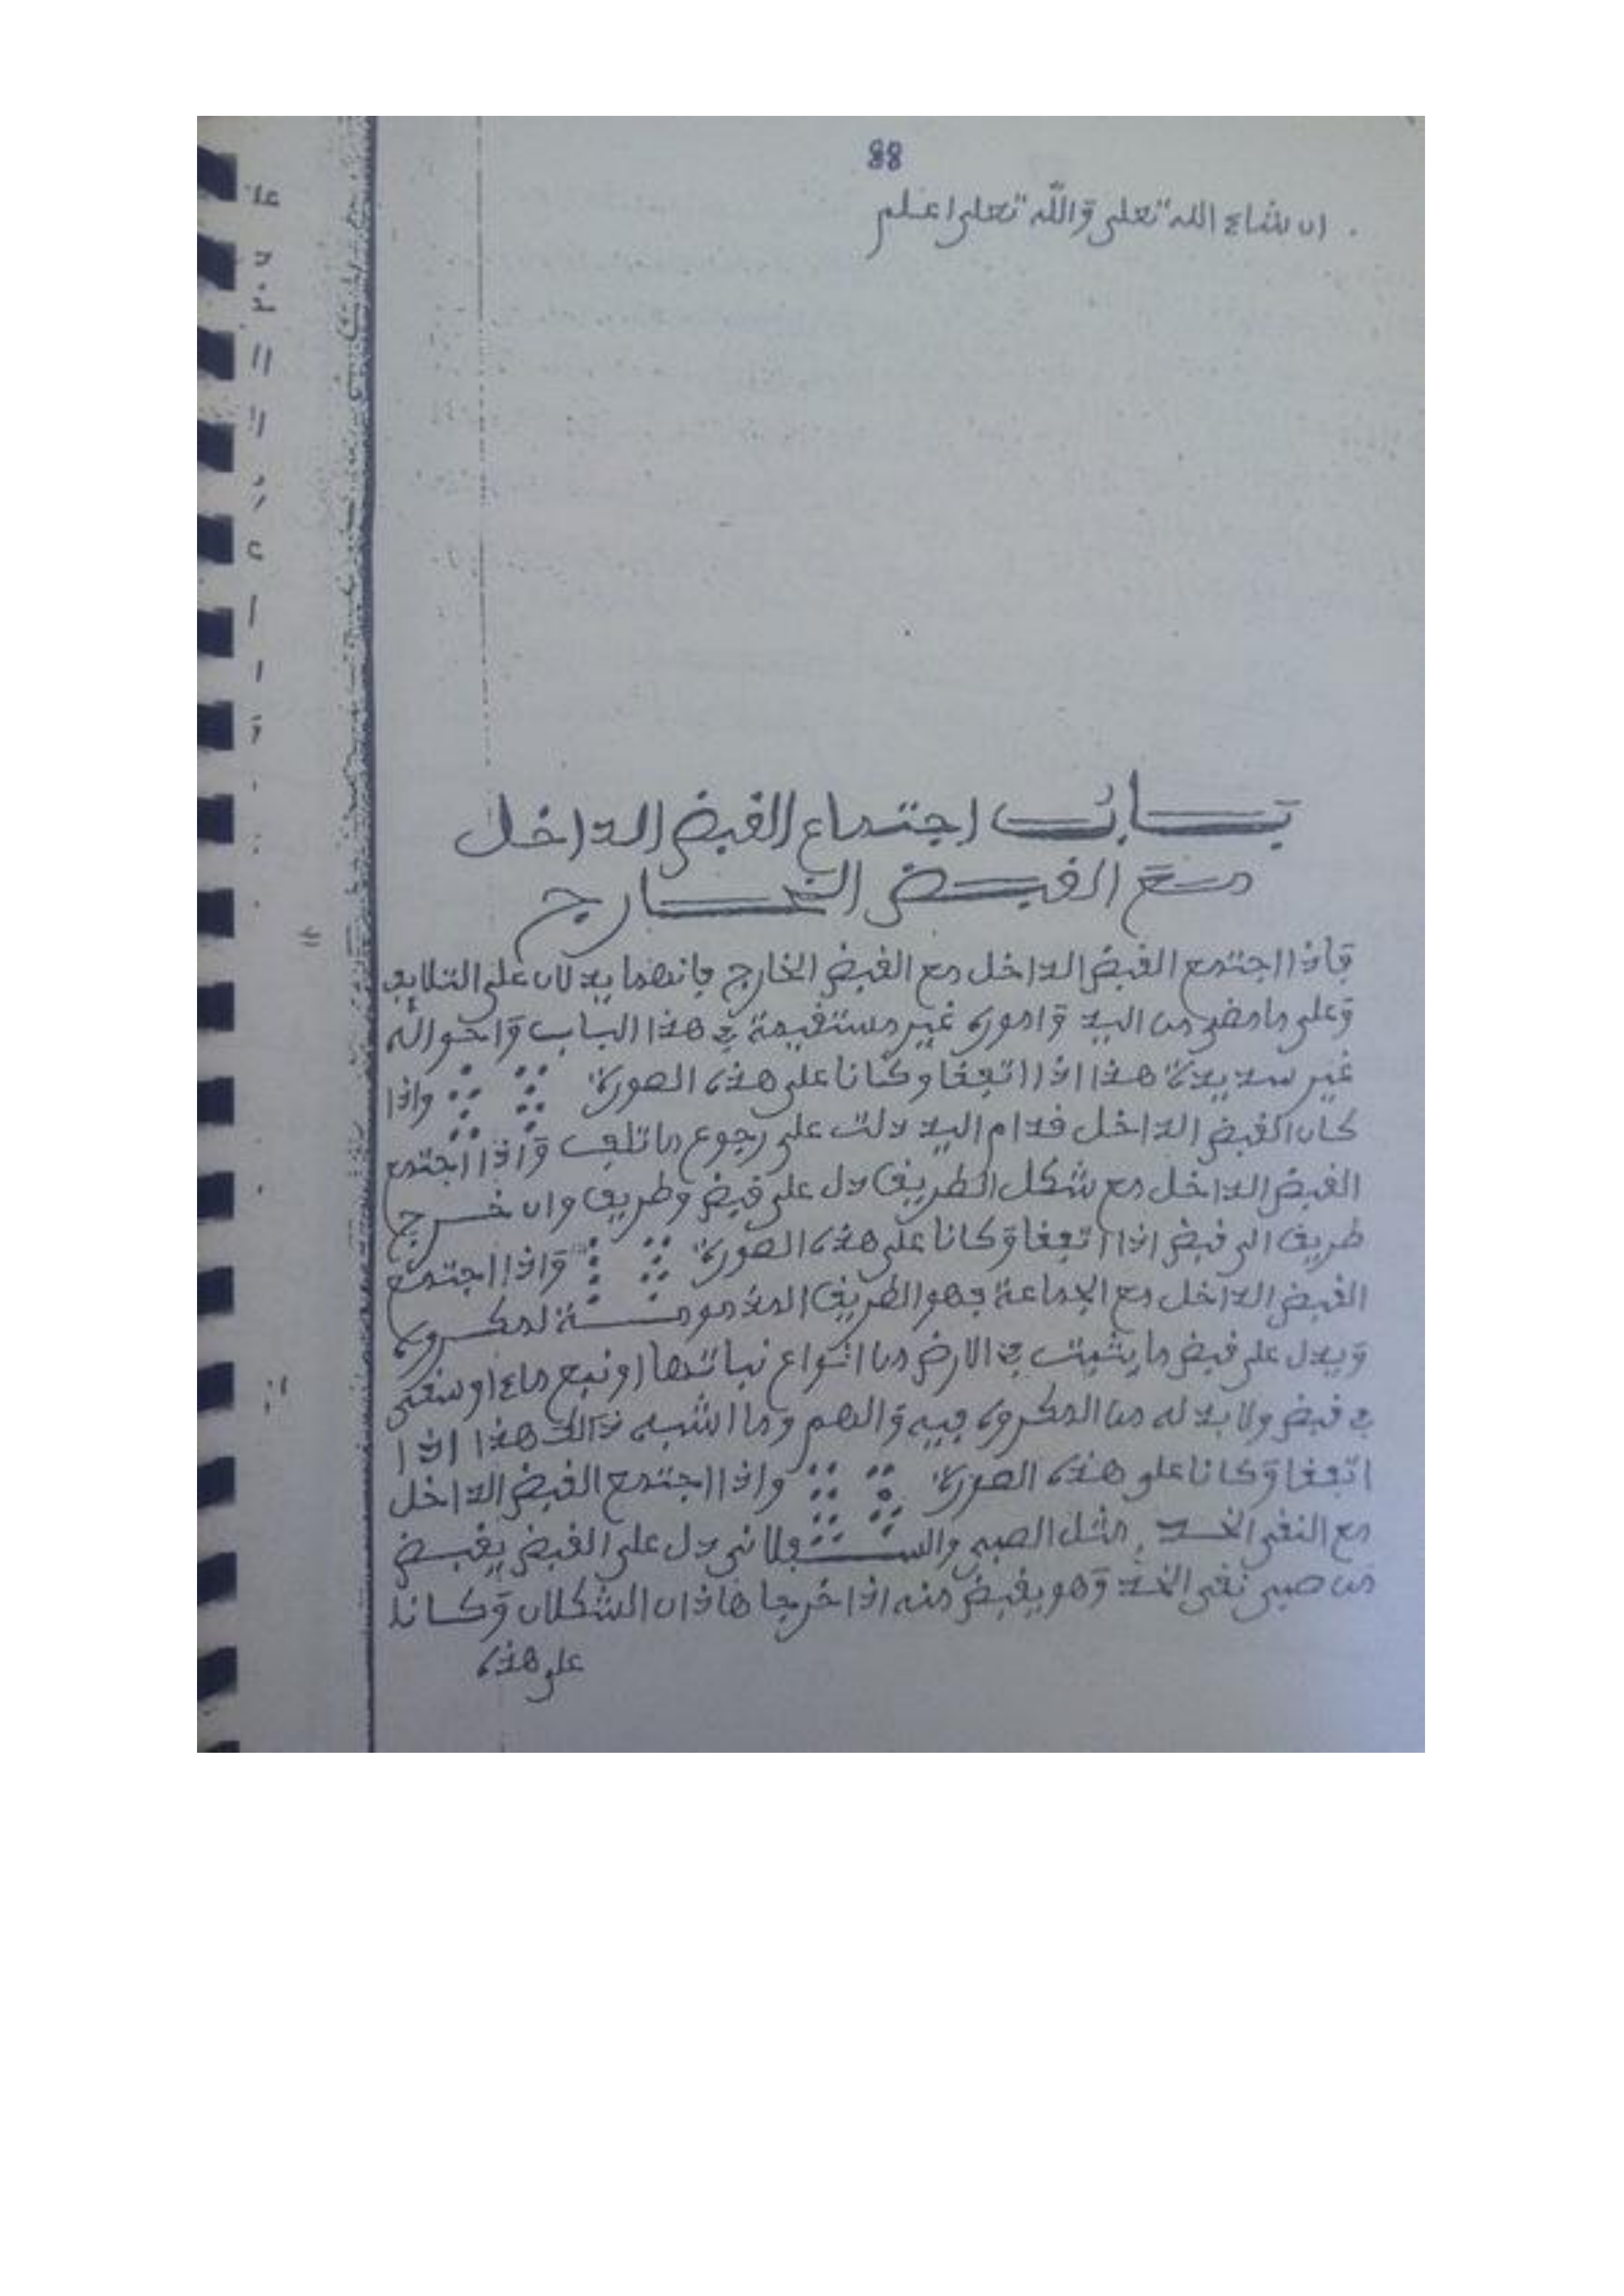 88
ان شاء الله تعلى والله تعلى اعلم
باب اجتماع القبض الداخل
مع القبض الخارج
فاذا اجتمع القبض الداخل مع القبض الخارج فانهما يدلان على التلايف
وعلى ما مضى من اليد واموره غير مستقيمة في هذا الباب واحواله
غير سديدة هذا اذا اتفقا وكانا على هذه الصورة واذا
كان القبض الداخل قدام اليد دلت على رجوع ما تلف واذا اجتمع
القبض الداخل مع شكل الطريق دل على قبض وطريق وان خرج
طريق الى قبض اذا اتفقا وكانا على هذه الصورة واذا اجتمع
القبض الداخل مع الجماعة فهو الطريق المذمومة لمكروه
ويدل على قبض ما يثبت في الارض من انواع نباتها او نبع ماء او سقى
في قبض ولا بد له من المكروه فيه والهم وما اشبه ذالك هذا اذا
اتفقا وكانا على هذه الصورة واذا اجتمع القبض الداخل
مع النقي الخد مثل الصبي وال دل على القبض يقبض
من صبى نقى الخد وهو يقبض منه اذا خرجا هاذان الشكلان وكانا
على هذه